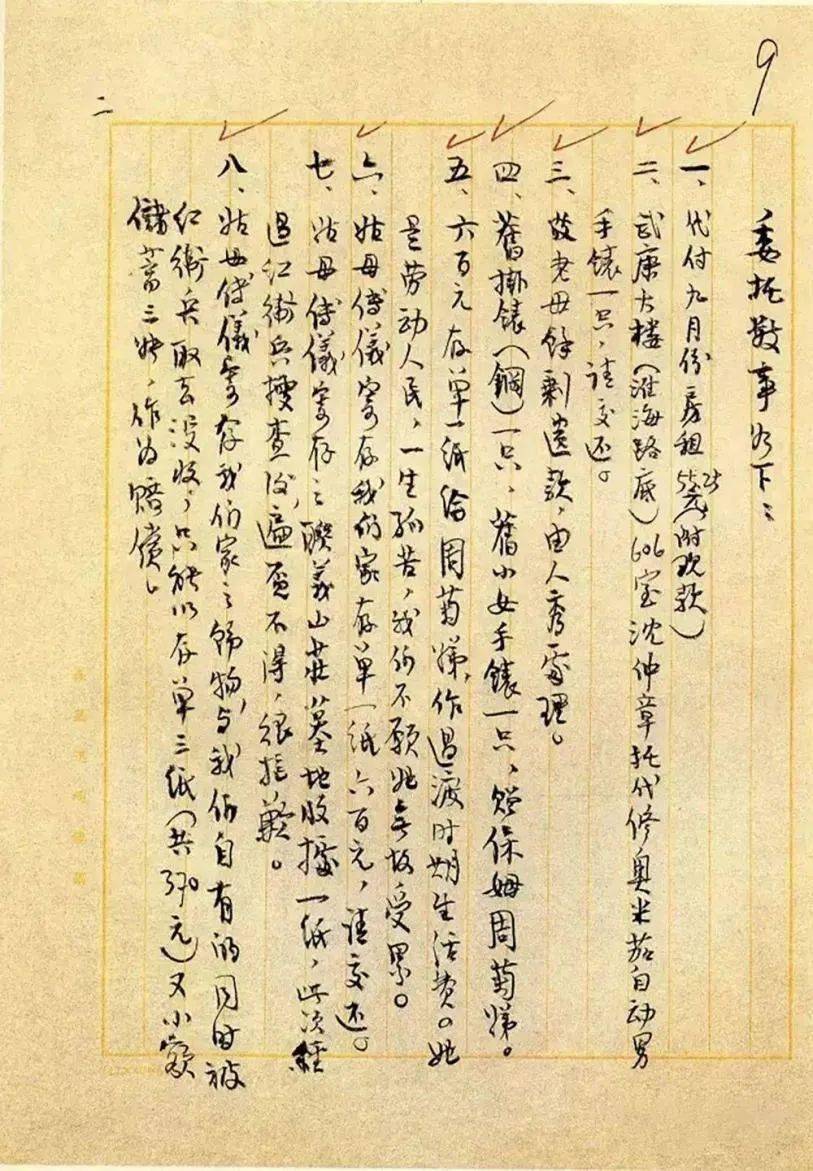 9
二
委托数事如下：
一、代付九月份房租55.29元（附现款）
二、武康大楼（淮海路底）606室沈仲章托代修奥米茄自动男
手錶一只，请交还。
三、故老母餘剩遗款，由人秀处理。
四、舊掛錶（鋼）一只，舊小女手錶一只，赠保姆周菊娣。
五、六百元存单一纸给周菊娣，作过渡时期生活费。她
是劳动人民，一生孤苦，我们不愿她无故受累。
六、姑母傅仪寄存我们家存单一纸六百元，请交还。
七、姑母傅仪寄存之联义山莊墓地收据一纸，此次經
过红衛兵搜查后，遍觅不得，很抱歉。
八、姑母傅仪寄存我们家之饰物，与我们自有的同时被
红衛兵取去没收，只能以存单三纸（共370元）又小额
儲蓄三张，作为赔偿。